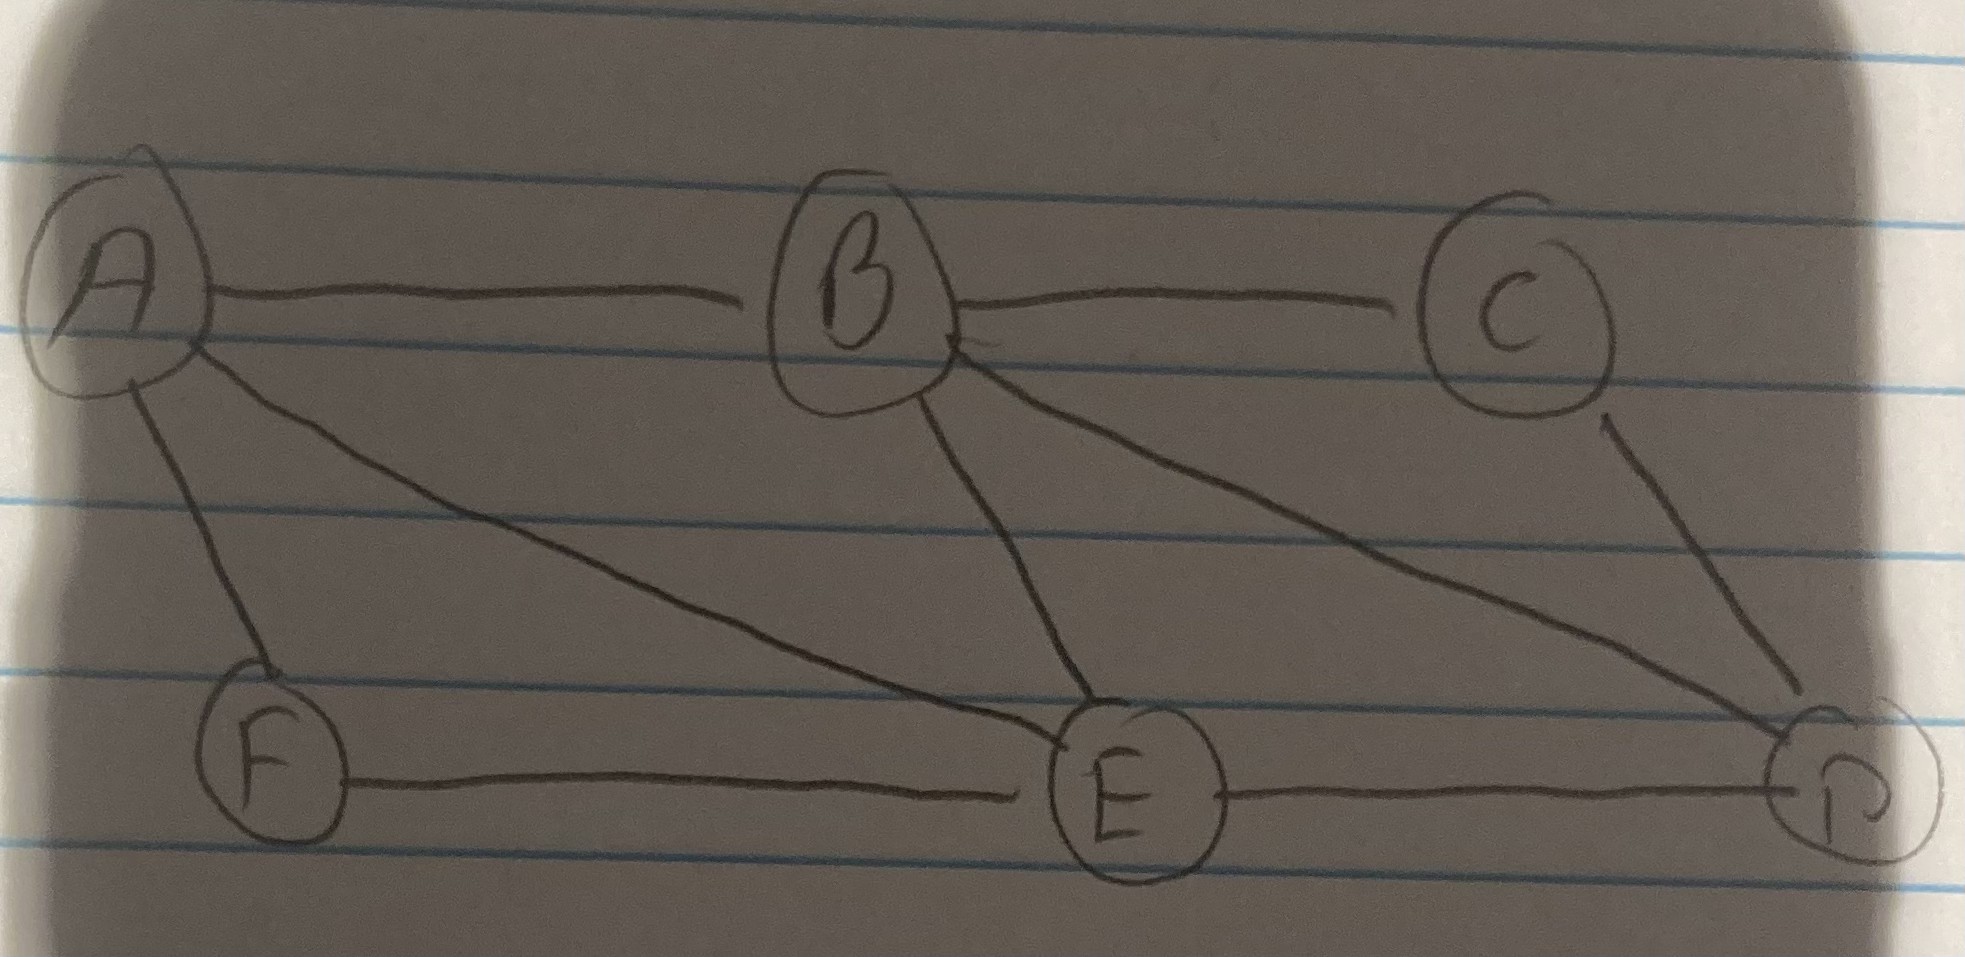 A B C
F E D